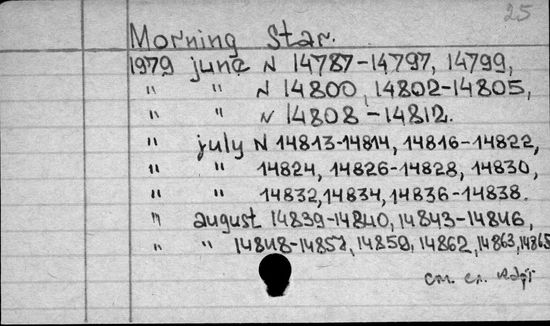 25
Morning Star.
1979 june N 14787-14797, 14799,
" " N 14800, 14802-14805,
" " N 14808-14812.
" july N 14813-14814, 14816-14822,
" " 14824, 14826-14828, 14830,
" " 14832, 14834, 14836-14838.
" august 14839-14840, 14843-14846,
" " 14848-14857, 14859, 14862, 14863, 14865
см. сл.